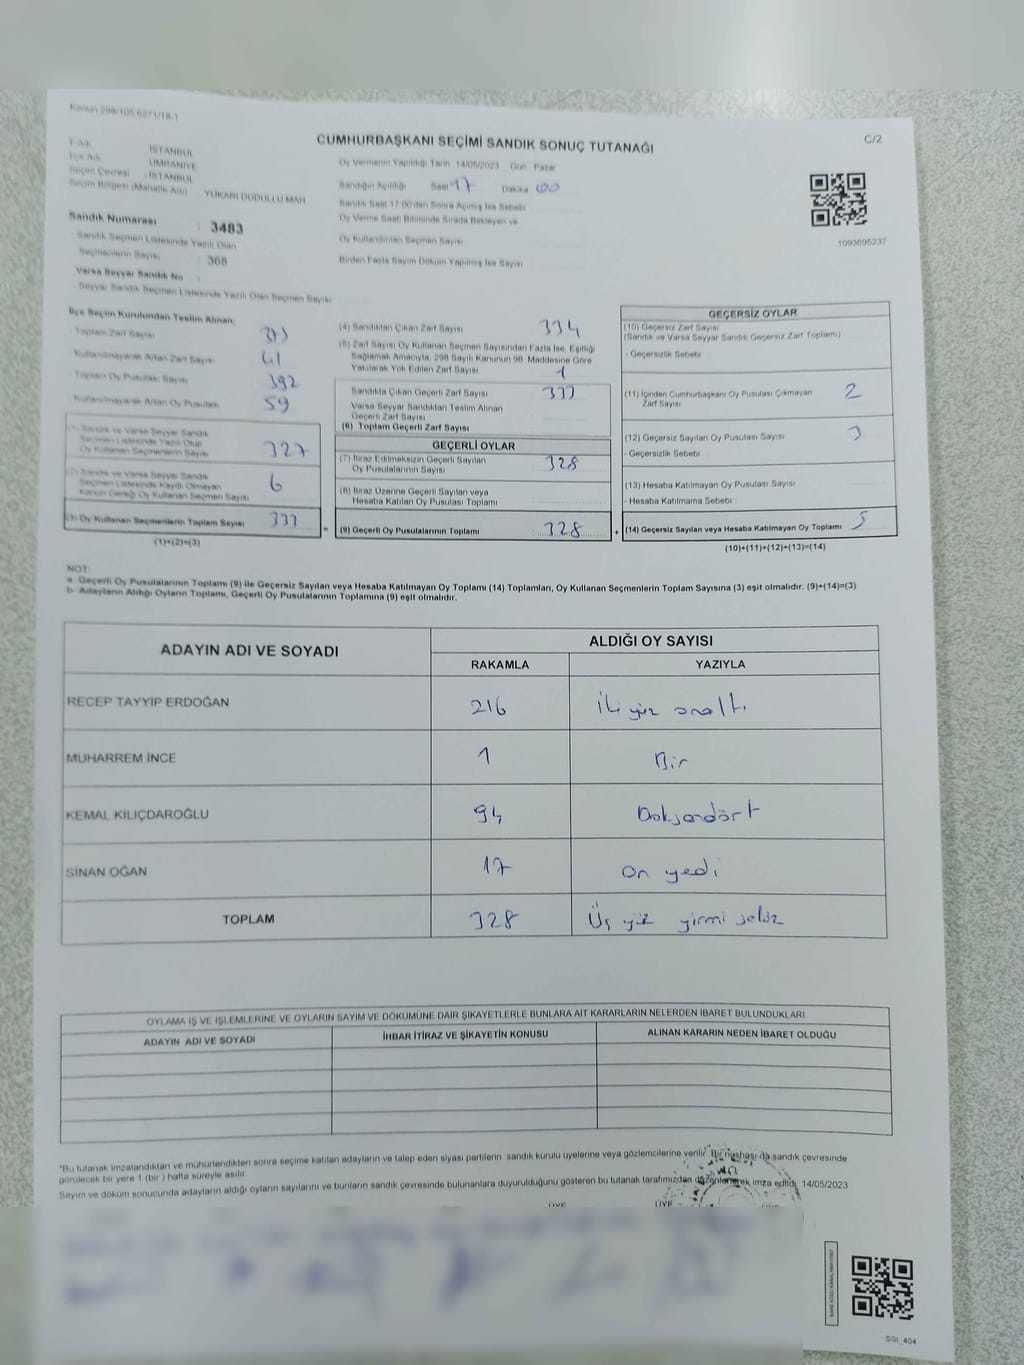 Kanun 298/105/6271/18.1
CUMHURBAŞKANI SEÇİMİ SANDIK SONUÇ TUTANAĞI
C/2
İl Adı : İSTANBUL
İlçe Adı : ÜMRANİYE
Seçim Çevresi : İSTANBUL
Seçim Bölgesi (Mahalle Adı) YUKARI DUDULLU MAH
Sandık Numarası : 3483
Sandık Seçmen Listesinde Yazılı Olan
Seçmenlerin Sayısı : 368
Varsa Seyyar Sandık No :
Seyyar Sandık Seçmen Listesinde Yazılı Olan Seçmen Sayısı
Oy Vermenin Yapıldığı Tarih 14/05/2023 Gün Pazar
Sandığın Açıldığı Saat 17 Dakika 00
Sandık Saat 17:00'den Sonra Açılmış İse Sebebi
Oy Verme Saati Bitiminde Sırada Bekleyen ve
Oy Kullandırılan Seçmen Sayısı
Birden Fazla Sayım Döküm Yapılmış İse Sayısı
1093695237
İlçe Seçim Kurulundan Teslim Alınan;
Toplam Zarf Sayısı
Kullanılmayarak Artan Zarf Sayısı 61
Toplam Oy Pusulası Sayısı 392
Kullanılmayarak Artan Oy Pusulası 59
(1) Sandık ve Varsa Seyyar Sandık
Seçmen Listesinde Yazılı Olup
Oy Kullanan Seçmenlerin Sayısı 327
(2) Sandık ve Varsa Seyyar Sandık
Seçmen Listesinde Kayıtlı Olmayan
Kanun Gereği Oy Kullanan Seçmen Sayısı 6
(3) Oy Kullanan Seçmenlerin Toplam Sayısı 333
(1)+(2)=(3)
(4) Sandıktan Çıkan Zarf Sayısı 334
(5) Zarf Sayısı Oy Kullanan Seçmen Sayısından Fazla İse, Eşitliği
Sağlamak Amacıyla, 298 Sayılı Kanunun 98. Maddesine Göre
Yakılarak Yok Edilen Zarf Sayısı 1
Sandıkta Çıkan Geçerli Zarf Sayısı 333
Varsa Seyyar Sandıktan Teslim Alınan
Geçerli Zarf Sayısı
(6) Toplam Geçerli Zarf Sayısı
GEÇERLİ OYLAR
(7) İtiraz Edilmeksizin Geçerli Sayılan
Oy Pusulalarının Sayısı 328
(8) İtiraz Üzerine Geçerli Sayılan veya
Hesaba Katılan Oy Pusulası Toplamı
= (9) Geçerli Oy Pusulalarının Toplamı 328
GEÇERSİZ OYLAR
(10) Geçersiz Zarf Sayısı
(Sandık ve Varsa Seyyar Sandık Geçersiz Zarf Toplamı)
- Geçersizlik Sebebi
(11) İçinden Cumhurbaşkanı Oy Pusulası Çıkmayan
Zarf Sayısı 2
(12) Geçersiz Sayılan Oy Pusulası Sayısı 3
- Geçersizlik Sebebi
(13) Hesaba Katılmayan Oy Pusulası Sayısı
- Hesaba Katılmama Sebebi
+ (14) Geçersiz Sayılan veya Hesaba Katılmayan Oy Toplamı 5
(10)+(11)+(12)+(13)=(14)
NOT:
a Geçerli Oy Pusulalarının Toplamı (9) ile Geçersiz Sayılan veya Hesaba Katılmayan Oy Toplamı (14) Toplamları, Oy Kullanan Seçmenlerin Toplam Sayısına (3) eşit olmalıdır. (9)+(14)=(3)
b Adayların Aldığı Oyların Toplamı, Geçerli Oy Pusulalarının Toplamına (9) eşit olmalıdır.
ADAYIN ADI VE SOYADI ALDIĞI OY SAYISI
RAKAMLA YAZIYLA
RECEP TAYYİP ERDOĞAN 216 İki yüz onaltı
MUHARREM İNCE 1 Bir
KEMAL KILIÇDAROĞLU 94 Doksandört
SİNAN OĞAN 17 On yedi
TOPLAM 328 Üç yüz yirmi sekiz
OYLAMA İŞ VE İŞLEMLERİNE VE OYLARIN SAYIM VE DÖKÜMÜNE DAİR ŞİKAYETLERLE BUNLARA AİT KARARLARIN NELERDEN İBARET BULUNDUKLARI
ADAYIN ADI VE SOYADI İHBAR İTİRAZ VE ŞİKAYETİN KONUSU ALINAN KARARIN NEDEN İBARET OLDUĞU
*Bu tutanak imzalandıktan ve mühürlendikten sonra seçime katılan adayların ve talep eden siyasi partilerin sandık kurulu üyelerine veya gözlemcilerine verilir. Bir nüshası da sandık çevresinde
görülecek bir yere 1 (bir ) hafta süreyle asılır.
Sayım ve döküm sonucunda adayların aldığı oyların sayılarını ve bunların sandık çevresinde bulunanlara duyurulduğunu gösteren bu tutanak tarafımızdan düzenlenerek imza edildi. 14/05/2023
ÜYE ÜYE
SSI_404